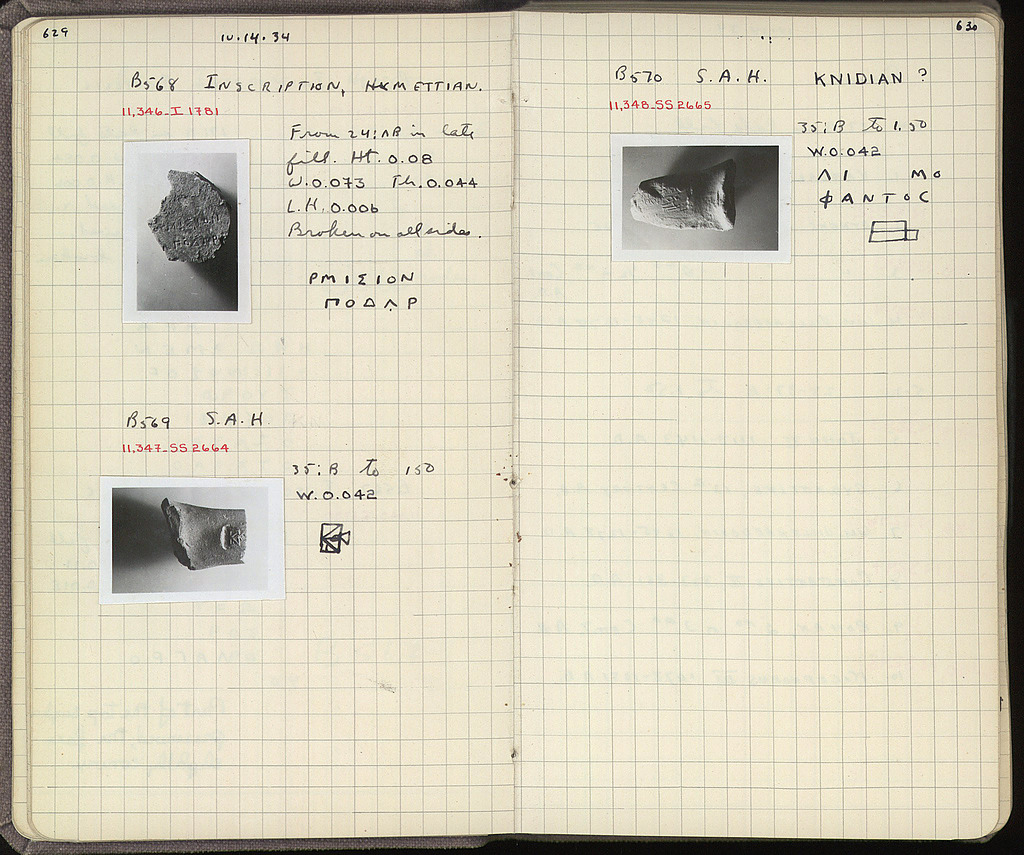 629
10.14.34
B568 INSCRIPTION, HYMETTIAN.
11,346-I 1781
From 24:ΛΒ in late
fill. Ht. 0.08
W. 0.073 Th. 0.044
L.H. 0.006
Broken on all sides.
ΡΜΙΣΙΟΝ
ΠΟΔΛΡ
B569 S.A.H.
11,347-SS 2664
35:B to 150
W. 0.042
630
B570 S.A.H. KNIDIAN ?
11,348-SS 2665
35:B to 1.50
W. 0.042
ΛΙ ΜΟ
ΦΑΝΤΟC